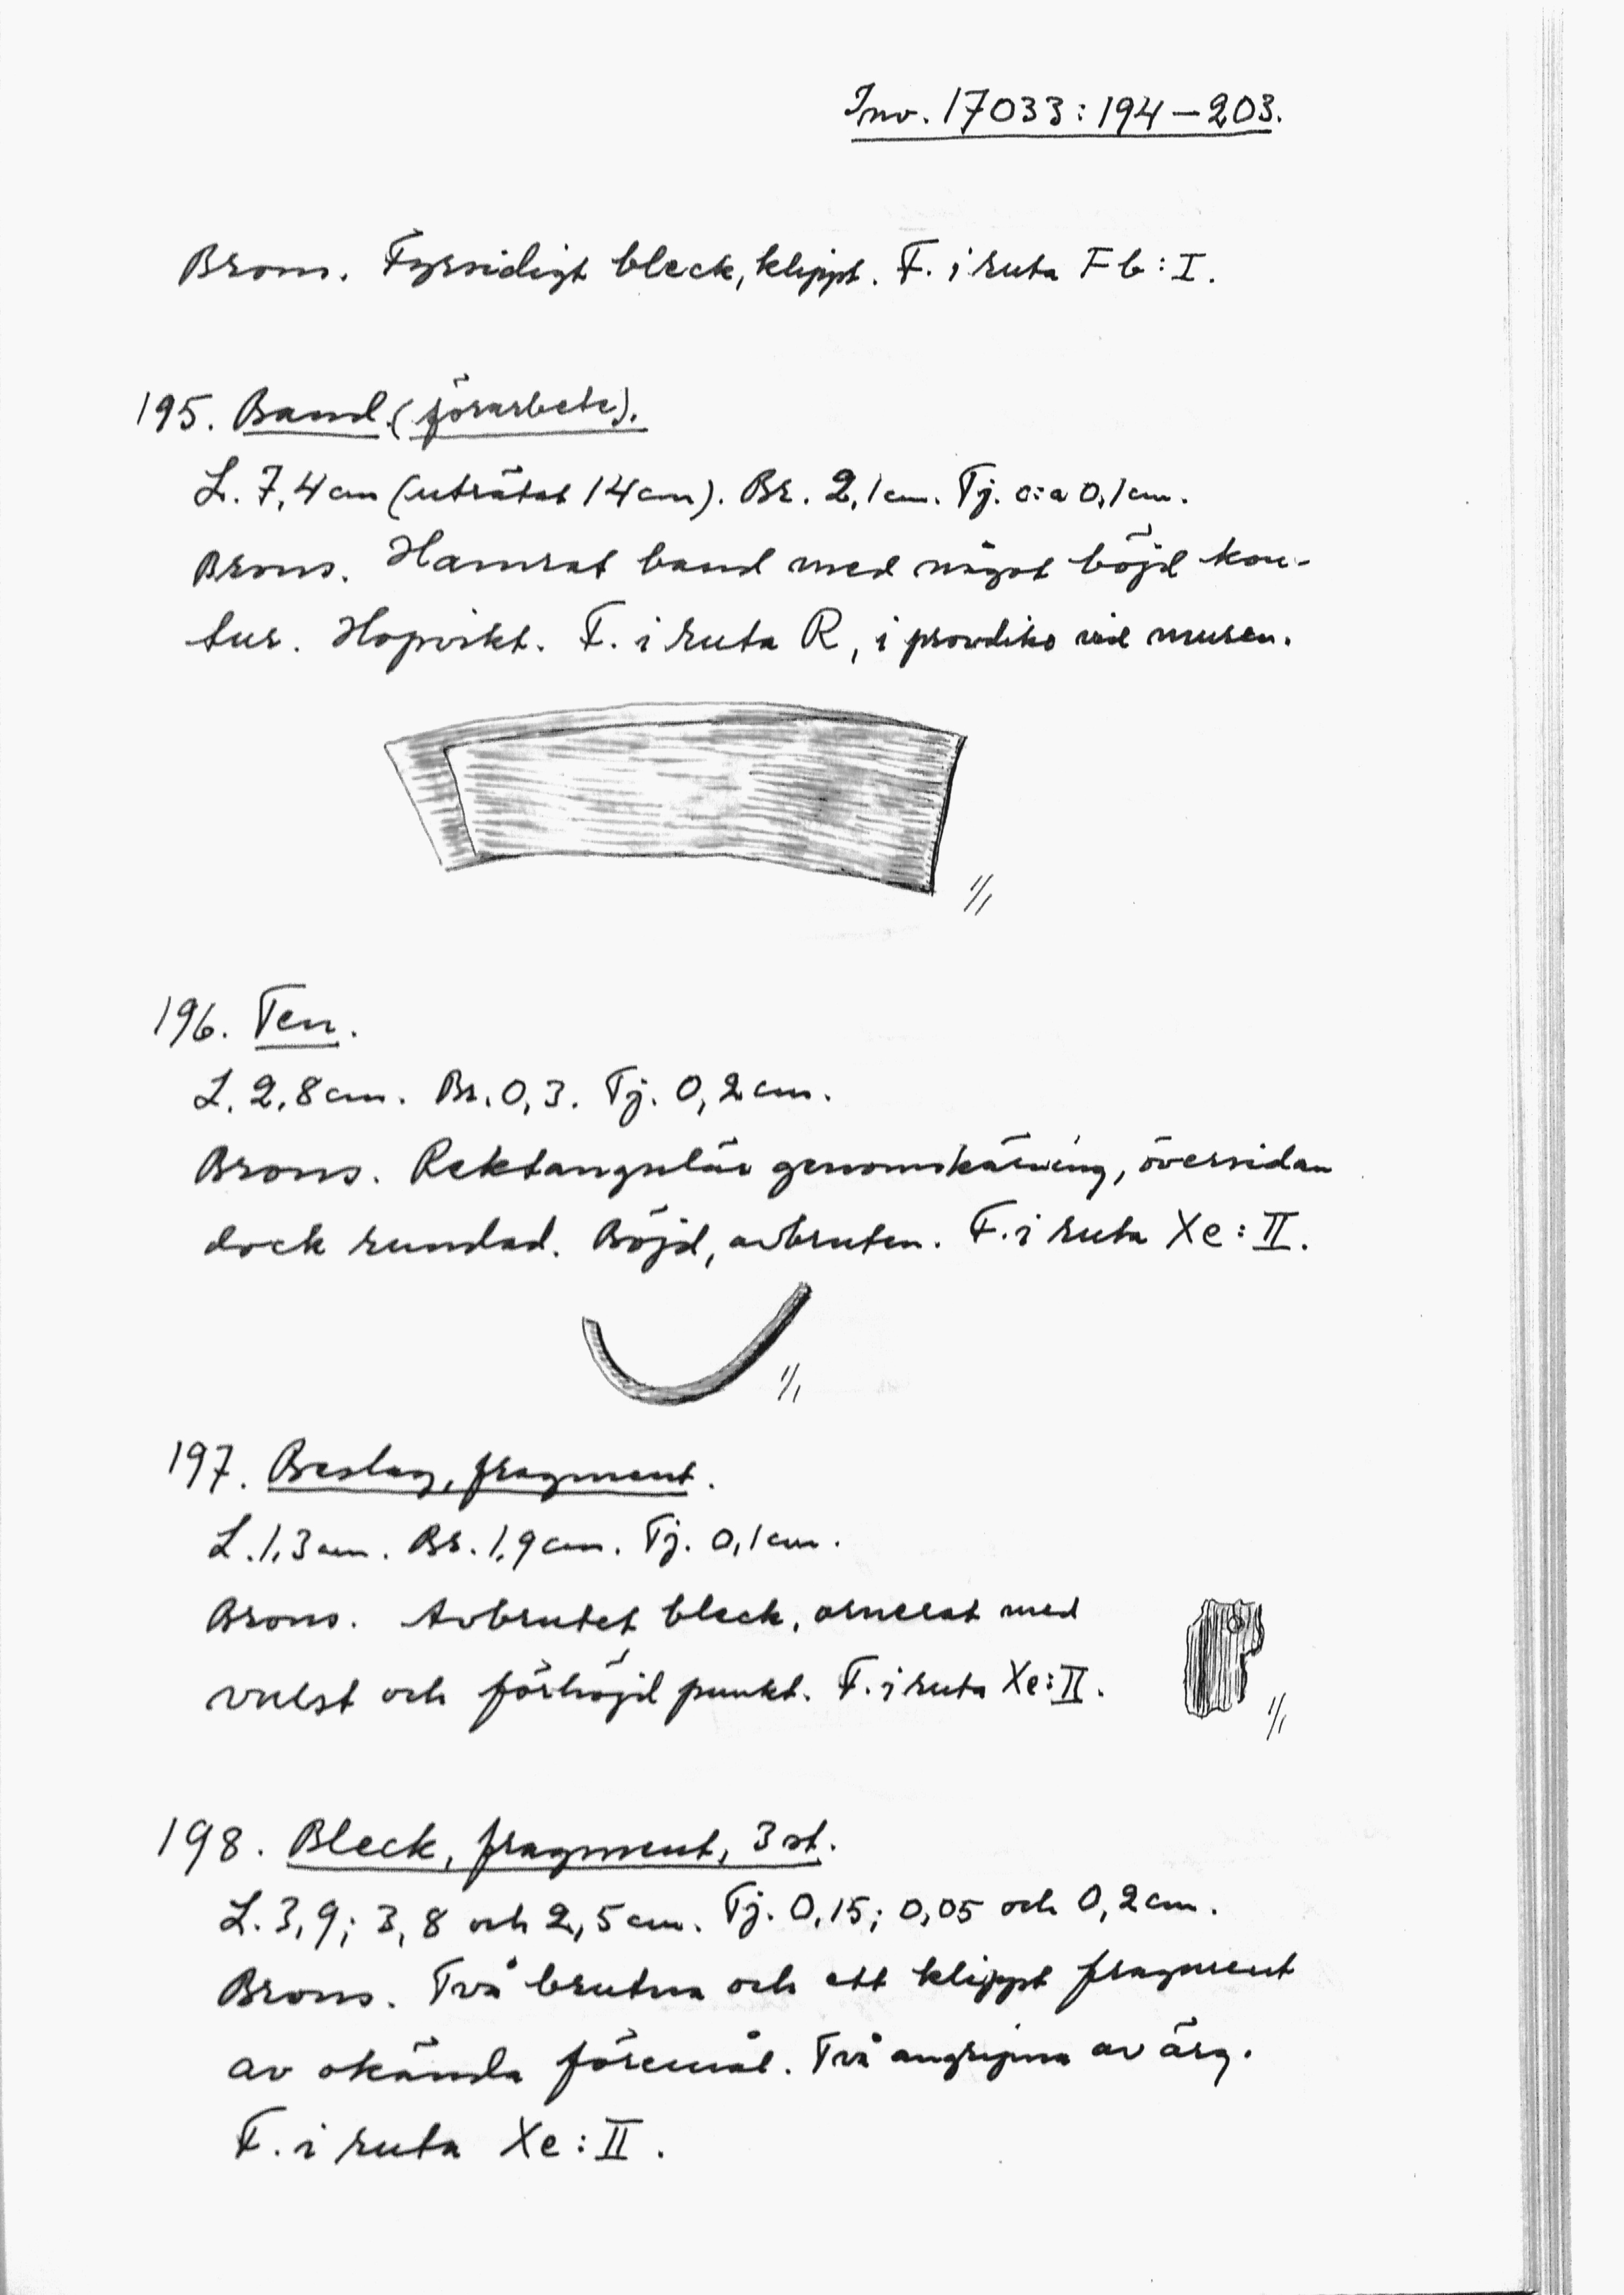 Inv. 17033:194–203.
Brons. Fyrsidigt bleck, klippt. F. i ruta Fb:I.
195. Band (förarbete).
L. 7,4 cm (uträtat 14 cm). Br. 2,1 cm. Tj. c:a 0,1 cm.
Brons. Hamrat band med något böjd kon-
tur. Hopvikt. F. i ruta R, i provdike vid muren.
1/1
196. Ten.
L. 2,8 cm. Br. 0,3. Tj. 0,2 cm.
Brons. Rektangulär genomskärning, översidan
dock rundad. Böjd, avbruten. F. i ruta Xe:II.
1/1
197. Beslag, fragment.
L. 1,3 cm. Br. 1,9 cm. Tj. 0,1 cm.
Brons. Avbrutet bleck, ornerat med
vulst och förhöjd punkt. F. i ruta Xe:II.
1/1
198. Bleck, fragment, 3 st.
L. 3,9; 3,8 och 2,5 cm. Tj. 0,15; 0,05 och 0,2 cm.
Brons. Två brutna och ett klippt fragment
av okända föremål. Två angripna av ärg.
F. i ruta Xe:II.